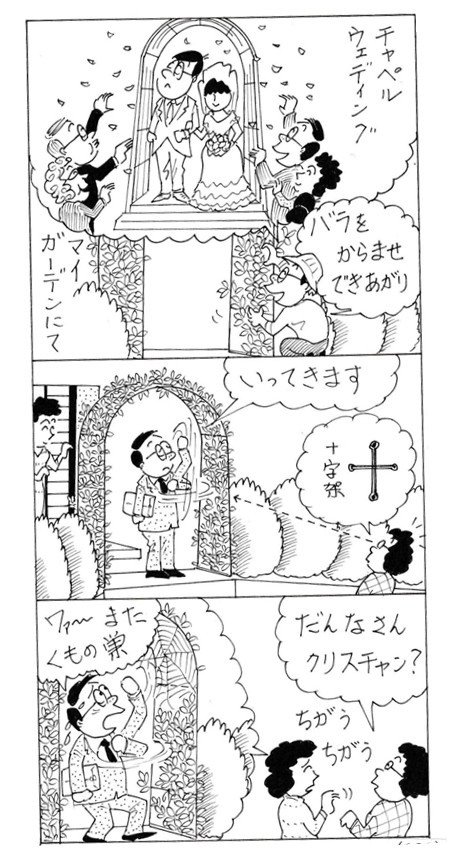 チャペル
ウェディング
マイ
ガーデンにて
バラを
からませ
できあがり
いってきます
十字架
ワァ〜また
くもの巣
だんなさん
クリスチャン?
ちがう
ちがう